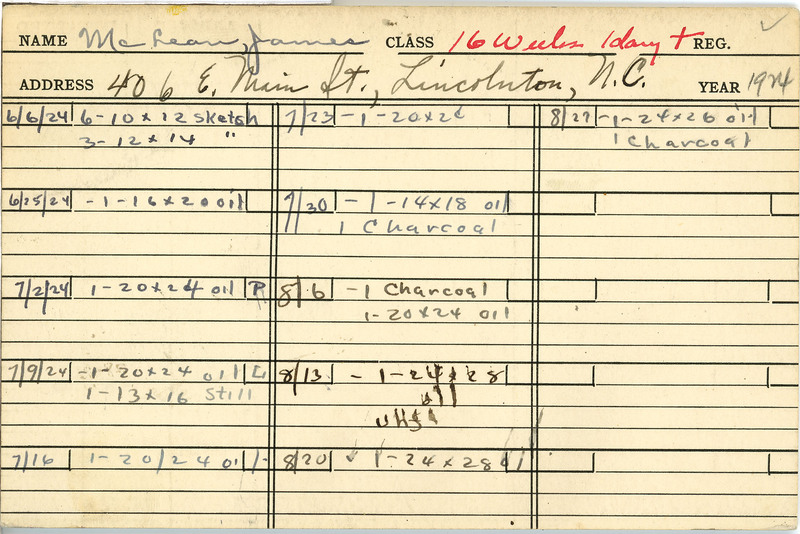 NAME McLean, James CLASS 16 Weeks 1 day + REG.
ADDRESS 406 E. Main St., Lincolnton, N.C. YEAR 1924
6/6/24 6-10x12 sketch
3-12x14 "
6/25/24 -1-16x20 oil
7/2/24 1-20x24 oil P
7/9/24 -1-20x24 oil
1-13x16 Still
7/16 1-20/24 oil
7/23 -1-20x24
7/30 -1-14x18 oil
1 Charcoal
8/6 -1 Charcoal
1-20x24 oil
8/13 - 1-24x28
oil
8/20 1-24x28 oil
8/27 -1-24x26 oil
1 Charcoal